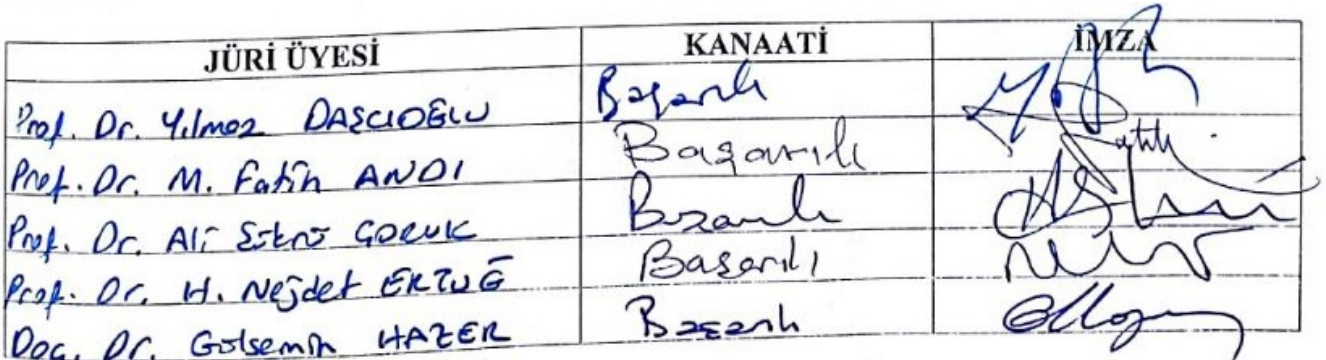 JÜRİ ÜYESİ KANAATİ İMZA
Prof. Dr. Yılmaz DAŞCIOĞLU Başarılı
Prof. Dr. M. Fatih ANDI Başarılı
Prof. Dr. Ali Şükrü ÇORUK Başarılı
Prof. Dr. H. Nejdet ERTUĞ Başarılı
Doç. Dr. Gülsemin HAZER Başarılı